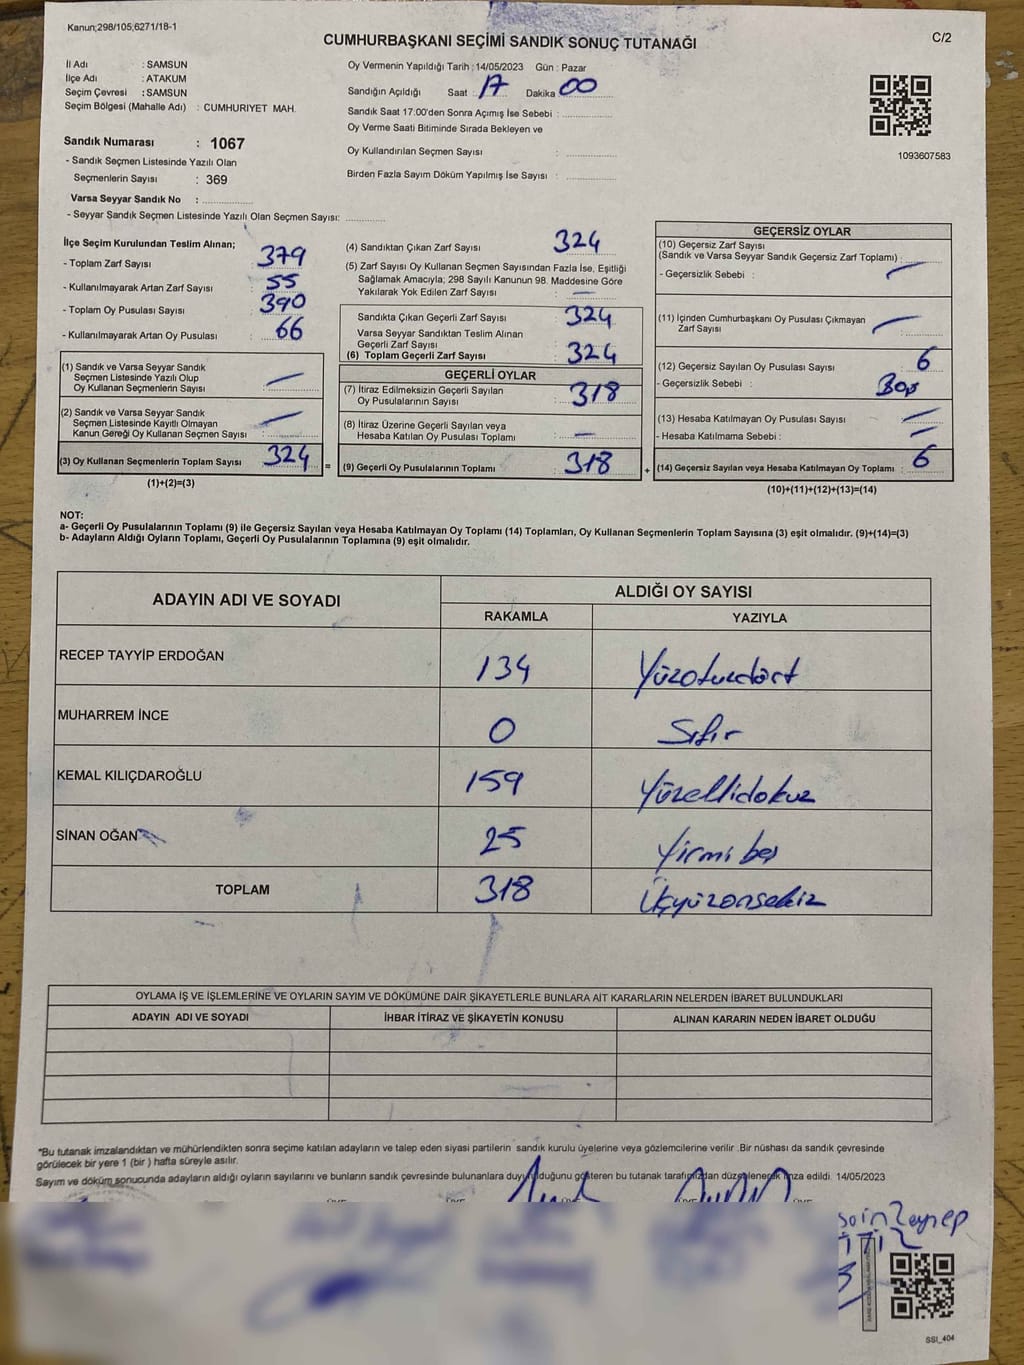 Kanun;298/105,6271/18-1
CUMHURBAŞKANI SEÇİMİ SANDIK SONUÇ TUTANAĞI
C/2
İl Adı : SAMSUN
İlçe Adı : ATAKUM
Seçim Çevresi : SAMSUN
Seçim Bölgesi (Mahalle Adı) : CUMHURIYET MAH.
Sandık Numarası : 1067
- Sandık Seçmen Listesinde Yazılı Olan
Seçmenlerin Sayısı : 369
Varsa Seyyar Sandık No :
- Seyyar Sandık Seçmen Listesinde Yazılı Olan Seçmen Sayısı:
Oy Vermenin Yapıldığı Tarih : 14/05/2023 Gün : Pazar
Sandığın Açıldığı Saat : 17 Dakika 00
Sandık Saat 17:00'den Sonra Açımış İse Sebebi :
Oy Verme Saati Bitiminde Sırada Bekleyen ve
Oy Kullandırılan Seçmen Sayısı :
Birden Fazla Sayım Döküm Yapılmış İse Sayısı :
1093607583
İlçe Seçim Kurulundan Teslim Alınan;
- Toplam Zarf Sayısı : 379
- Kullanılmayarak Artan Zarf Sayısı : 55
- Toplam Oy Pusulası Sayısı : 390
- Kullanılmayarak Artan Oy Pusulası : 66
(1) Sandık ve Varsa Seyyar Sandık
Seçmen Listesinde Yazılı Olup
Oy Kullanan Seçmenlerin Sayısı : —
(2) Sandık ve Varsa Seyyar Sandık
Seçmen Listesinde Kayıtlı Olmayan
Kanun Gereği Oy Kullanan Seçmen Sayısı : —
(3) Oy Kullanan Seçmenlerin Toplam Sayısı 324
(1)+(2)=(3)
(4) Sandıktan Çıkan Zarf Sayısı : 324
(5) Zarf Sayısı Oy Kullanan Seçmen Sayısından Fazla İse, Eşitliği
Sağlamak Amacıyla; 298 Sayılı Kanunun 98. Maddesine Göre
Yakılarak Yok Edilen Zarf Sayısı : —
Sandıkta Çıkan Geçerli Zarf Sayısı : 324
Varsa Seyyar Sandıktan Teslim Alınan
Geçerli Zarf Sayısı
(6) Toplam Geçerli Zarf Sayısı : 324
GEÇERLİ OYLAR
(7) İtiraz Edilmeksizin Geçerli Sayılan
Oy Pusulalarının Sayısı : 318
(8) İtiraz Üzerine Geçerli Sayılan veya
Hesaba Katılan Oy Pusulası Toplamı : —
= (9) Geçerli Oy Pusulalarının Toplamı : 318 +
GEÇERSİZ OYLAR
(10) Geçersiz Zarf Sayısı
(Sandık ve Varsa Seyyar Sandık Geçersiz Zarf Toplamı) :
- Geçersizlik Sebebi : —
(11) İçinden Cumhurbaşkanı Oy Pusulası Çıkmayan
Zarf Sayısı : —
(12) Geçersiz Sayılan Oy Pusulası Sayısı : 6
- Geçersizlik Sebebi : Boş
(13) Hesaba Katılmayan Oy Pusulası Sayısı : —
- Hesaba Katılmama Sebebi : —
(14) Geçersiz Sayılan veya Hesaba Katılmayan Oy Toplamı : 6
(10)+(11)+(12)+(13)=(14)
NOT:
a- Geçerli Oy Pusulalarının Toplamı (9) ile Geçersiz Sayılan veya Hesaba Katılmayan Oy Toplamı (14) Toplamları, Oy Kullanan Seçmenlerin Toplam Sayısına (3) eşit olmalıdır. (9)+(14)=(3)
b- Adayların Aldığı Oyların Toplamı, Geçerli Oy Pusulalarının Toplamına (9) eşit olmalıdır.
ADAYIN ADI VE SOYADI
ALDIĞI OY SAYISI
RAKAMLA YAZIYLA
RECEP TAYYİP ERDOĞAN 134 Yüzotuzdört
MUHARREM İNCE 0 Sıfır
KEMAL KILIÇDAROĞLU 159 Yüzellidokuz
SİNAN OĞAN 25 Yirmi beş
TOPLAM 318 Üçyüzonsekiz
OYLAMA İŞ VE İŞLEMLERİNE VE OYLARIN SAYIM VE DÖKÜMÜNE DAİR ŞİKAYETLERLE BUNLARA AİT KARARLARIN NELERDEN İBARET BULUNDUKLARI
ADAYIN ADI VE SOYADI İHBAR İTİRAZ VE ŞİKAYETİN KONUSU ALINAN KARARIN NEDEN İBARET OLDUĞU
*Bu tutanak imzalandıktan ve mühürlendikten sonra seçime katılan adayların ve talep eden siyasi partilerin sandık kurulu üyelerine veya gözlemcilerine verilir .Bir nüshası da sandık çevresinde
görülecek bir yere 1 (bir ) hafta süreyle asılır.
Sayım ve döküm sonucunda adayların aldığı oyların sayılarını ve bunların sandık çevresinde bulunanlara duyurulduğunu gösteren bu tutanak tarafımızdan düzenlenerek imza edildi. 14/05/2023
Zeynep
SSI_404